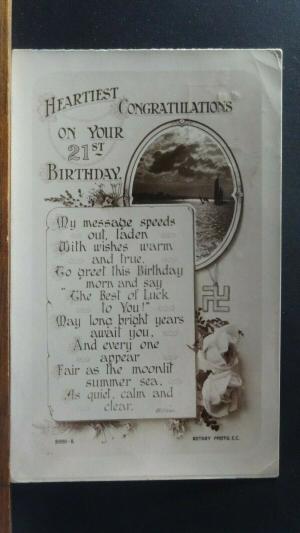 HEARTIEST CONGRATULATIONS
ON YOUR
21ST
BIRTHDAY.
My message speeds
out, laden
With wishes warm
and true.
To greet this Birthday
morn and say
"The Best of Luck
to You!"
May long bright years
await you,
And every one
appear
Fair as the moonlit
summer sea,
As quiet, calm and
clear.
ROTARY PHOTO, E.C.